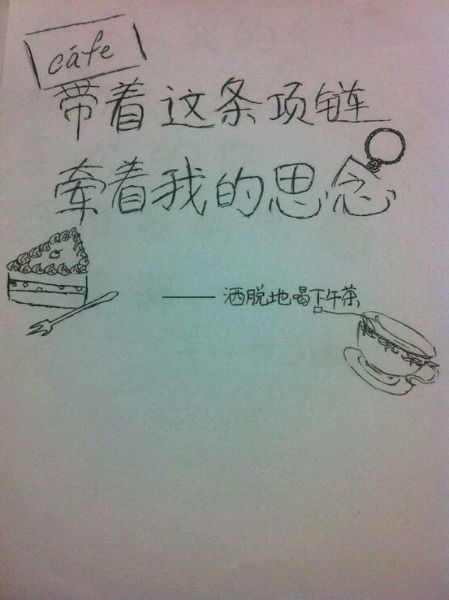 cáfe
带着这条项链
牵着我的思念
——洒脱地喝下午茶